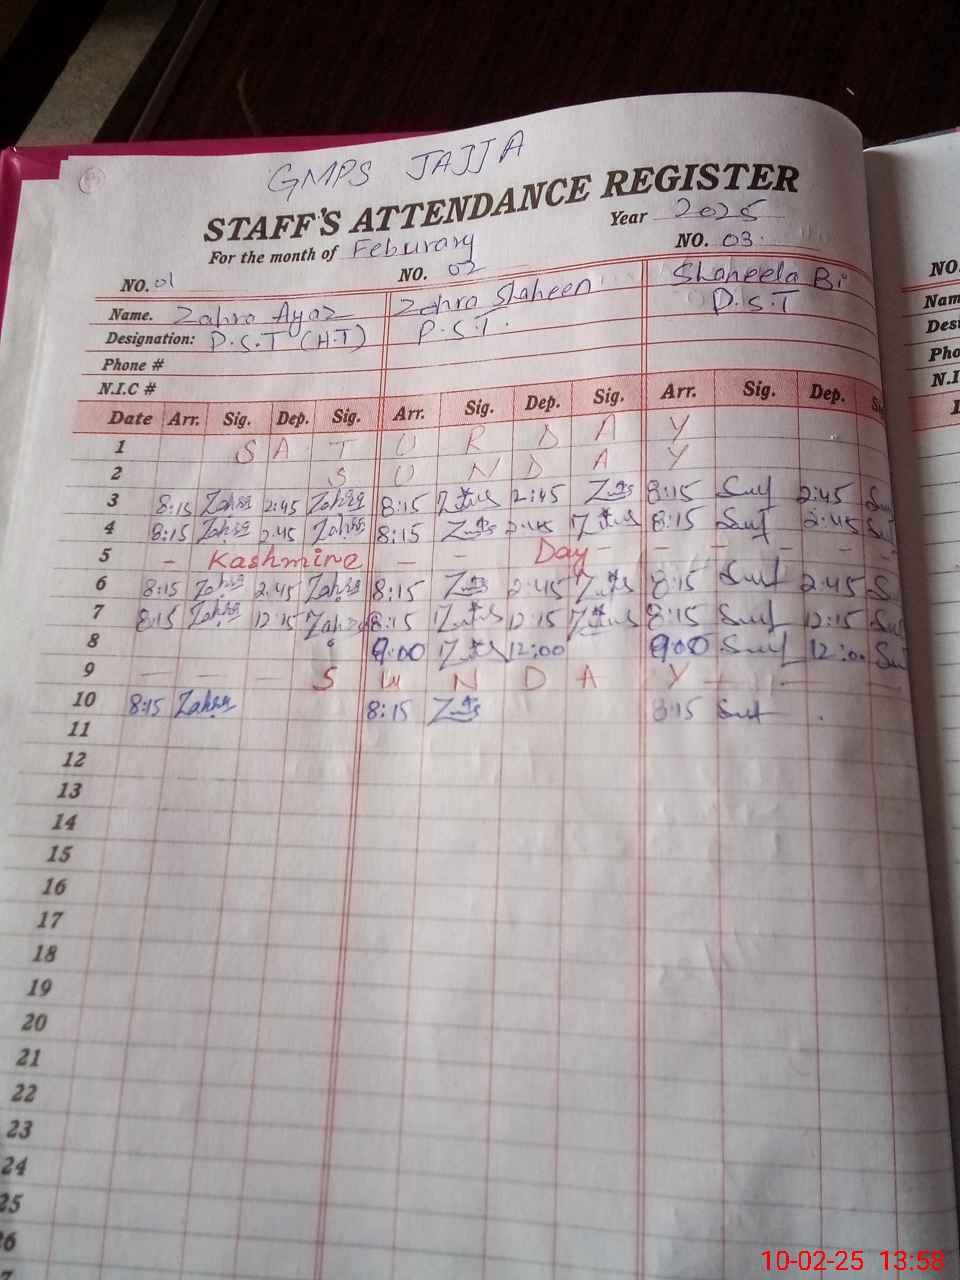 GMPS JAJJA
STAFF'S ATTENDANCE REGISTER
For the month of Feburary Year 2025
NO. 01 NO. 02 NO. 03
Name. Zahra Ayaz Zahra Shaheen Shaheela Bi
Designation: P.S.T (H.T) P.S.T. P.S.T
Phone #
N.I.C #
Date Arr. Sig. Dep. Sig. Arr. Sig. Dep. Sig. Arr. Sig. Dep.
1 S A T U R D A Y
2 S U N D A Y
3 8:15 Zahra 2:45 Zahra 8:15 2:45 8:15 2:45
4 8:15 Zahra 2:45 Zahra 8:15 2:45 8:15 2:45
5 - Kashmire - - Day - - - - -
6 8:15 Zahra 2:45 Zahra 8:15 2:45 8:15 2:45
7 8:15 Zahra 12:15 Zahra 8:15 12:15 8:15 12:15
8 9:00 12:00 9:00 12:00
9 - - - S U N D A Y - - -
10 8:15 Zahra 8:15 8:15
11
12
13
14
15
16
17
18
19
20
21
22
23
24
25
26
NO.
Nam
Des
Pho
N.I
10-02-25 13:58